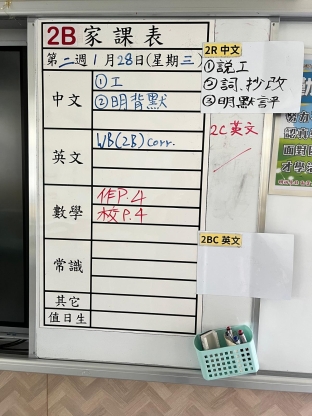 2B 家課表
第二週1月28日(星期三)
中文
①工
②明背默
英文
WB(2B) corr.
數學
作P.4
校P.4
常識
其它
值日生
2R 中文
①說工
②詞.抄改
③明默評
2C 英文
2BC 英文
面對